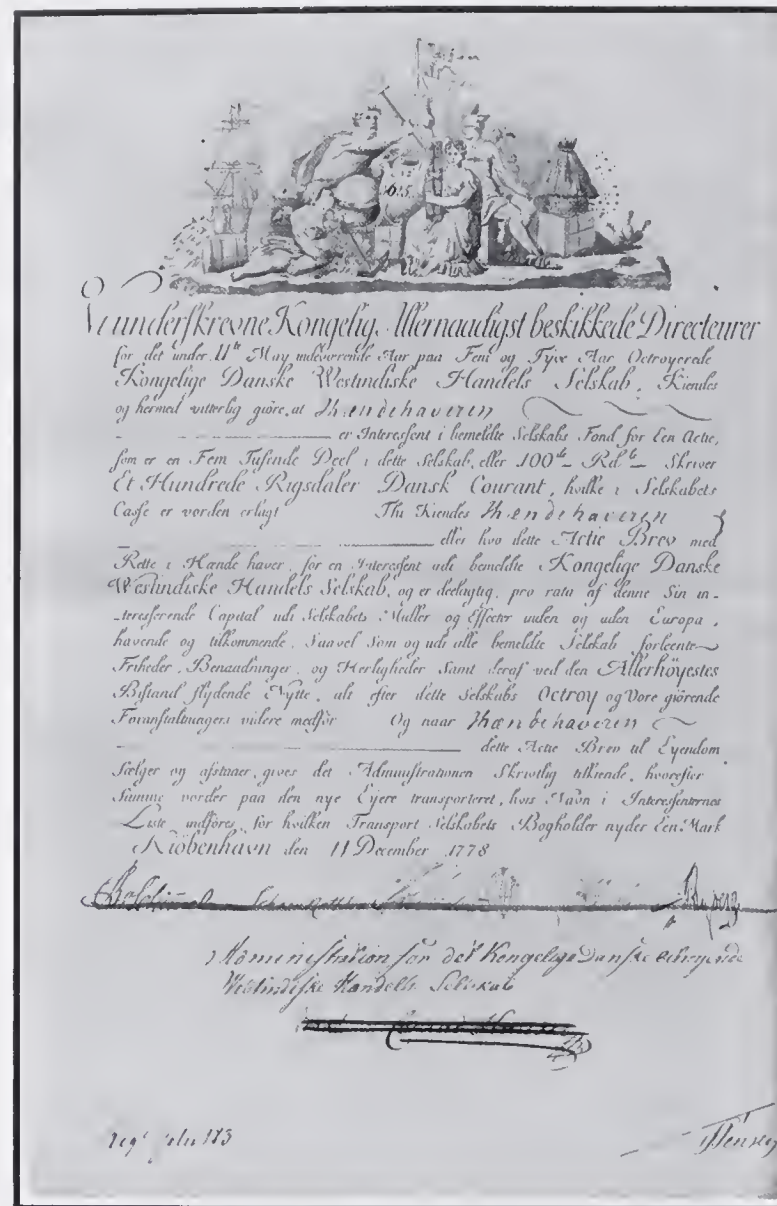 615.
Vi underskrevne Kongelig Allernaadigst beskikkede Directeurer
for det under 11te May indeværende Aar paa Fem og Tyve Aar Octroyerede
Kongelige Danske Westindiske Handels Selskab, Kiendes
og hermed vitterlig giöre, at Ihændehaveren
er Interessent i bemeldte Selskabs Fond for Een Actie,
som er en Fem Tusinde Deel i dette Selskab, eller 100de Rdle Skriver
Et Hundrede Rigsdaler Dansk Courant, hvilke i Selskabets
Casse er vorden erlagt Thi Kiendes Ihændehaveren
eller hvo dette Actie Brev med
Rette i Hænde haver, for en Interessent udi bemeldte Kongelige Danske
Westindiske Handels Selskab, og er deelagtig, pro rata af denne Sin in-
-teresserende Capital udi Selskabets Midler og Effecter inden og uden Europa,
havende og tilkommende, Saavel Som og udi alle bemeldte Selskab forleente
Friheder, Benaadninger, og Herligheder Samt deraf ved den Allerhöyestes
Bistand flydende Nytte, alt efter dette Selskabs Octroy og Vore giörende
Foranstaltninger videre medför Og naar Ihændehaveren
dette Actie Brev til Eyendom
Sælger og afstaaer, gives det Administrationen Skriftlig tilkiende, hvorefter
Samme vorder paa den nye Ejere transporteret, hvis Navn i Interessenternes
Liste indföres, for hvilken Transport Selskabets Bogholder nyder Een Mark
Kiöbenhavn den 11 December 1778
Administration for det Kongelige Danske octroyerede
Westindiske Handels Selskab
Regt folio 173